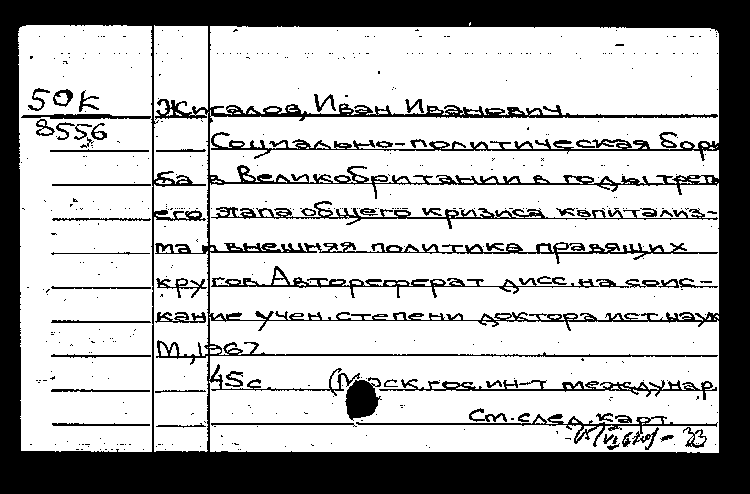 50К
8556
Жигалов, Иван Иванович.
Социально-политическая борь
ба в Великобритании в годы треть
его этапа общего кризиса капитализ-
ма и внешняя политика правящих
кругов. Автореферат дисс. на соис-
кание учен. степени доктора ист. наук
М., 1967.
45с. (Моск. гос. ин-т междунар.
См. след. карт.